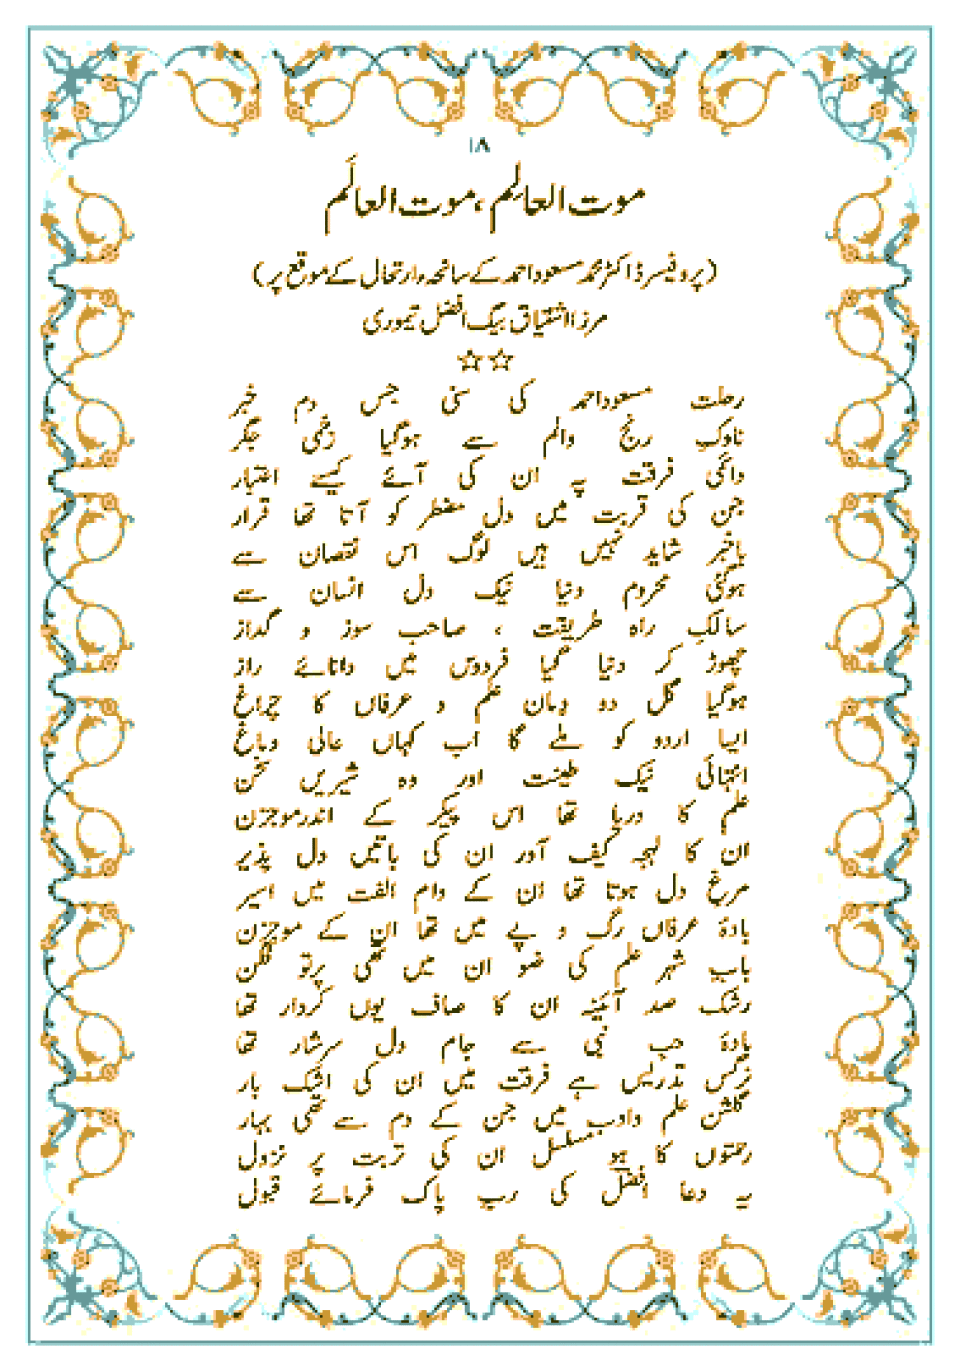 ۱۸
موت العالِم ، موت العالَم
(پروفیسر ڈاکٹر محمد مسعود احمد کے سانحہ وارتحال کے موقع پر)
مرزا اشتیاق بیگ افضل تیموری
☆☆
رحلت مسعود احمد کی سنی جس دم خبر
ناوک رنج والم سے ہوگیا زخمی جگر
دائمی فرقت پہ ان کی آئے کیسے اعتبار
جن کی قربت میں دل مضطر کو آتا تھا قرار
باخبر شاید نہیں ہیں لوگ اس نقصان سے
ہوگئی محروم دنیا نیک دل انسان سے
سالکِ راہ طریقت ، صاحب سوز و گداز
چھوڑ کر دنیا گیا فردوس میں دانائے راز
ہوگیا گل دو دمان علم و عرفاں کا چراغ
ایسا اردو کو ملے گا اب کہاں عالی دماغ
انتہائی نیک طینت اور وہ شیریں سخن
علم کا دریا تھا اس پیکر کے اندر موجزن
ان کا لہجہ کیف آور ان کی باتیں دل پذیر
مرغ دل ہوتا تھا ان کے دام الفت میں اسیر
بادۂ عرفاں رگ و پے میں تھا ان کے موجزن
باب شہر علم کی ضو ان میں تھی پرتو فگن
رشک صد آئینہ ان کا صاف یوں کردار تھا
بادۂ حب نبی سے جام دل سرشار تھا
نرگس تدریس ہے فرقت میں ان کی اشک بار
گلشن علم وادب میں جن کے دم سے تھی بہار
رحمتوں کا ہو مسلسل ان کی تربت پر نزول
یہ دعا افضل کی رب پاک فرمائے قبول